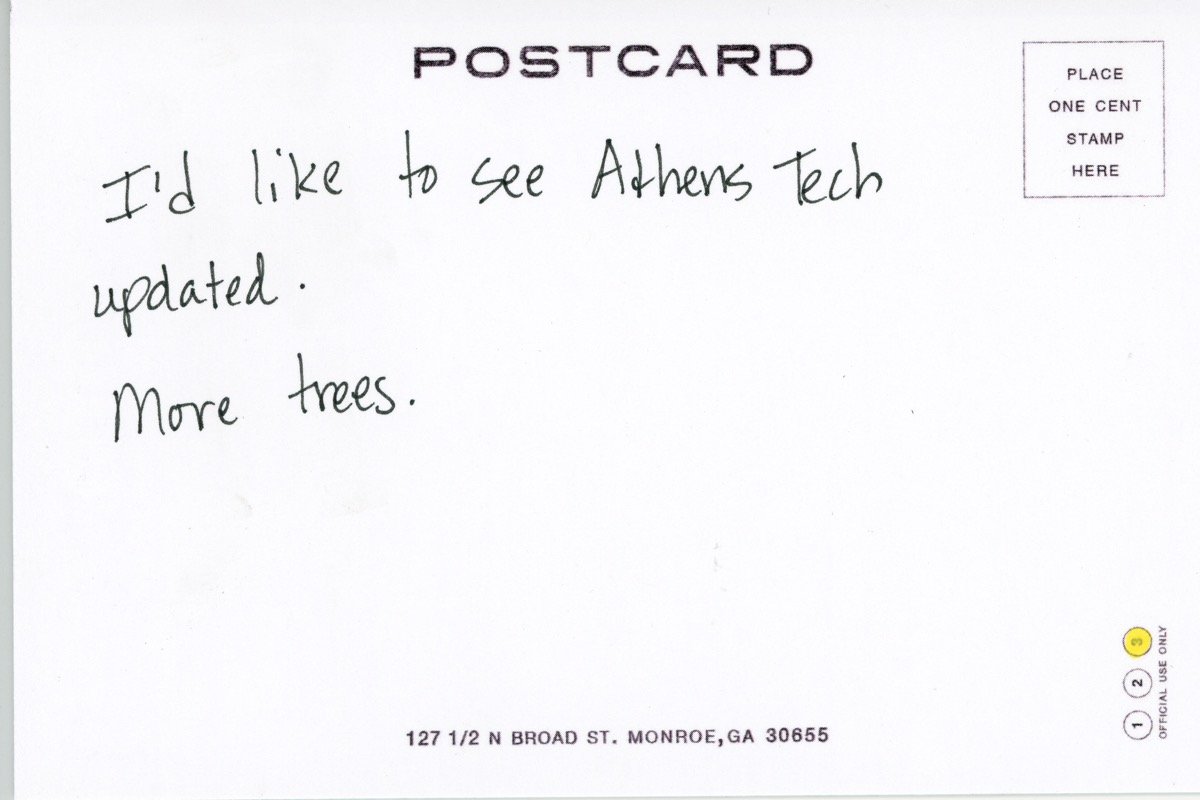 POSTCARD
PLACE
ONE CENT
STAMP
HERE
I'd like to see Athens Tech
updated.
More trees.
127 1/2 N BROAD ST. MONROE, GA 30655
1 2 3
OFFICIAL USE ONLY